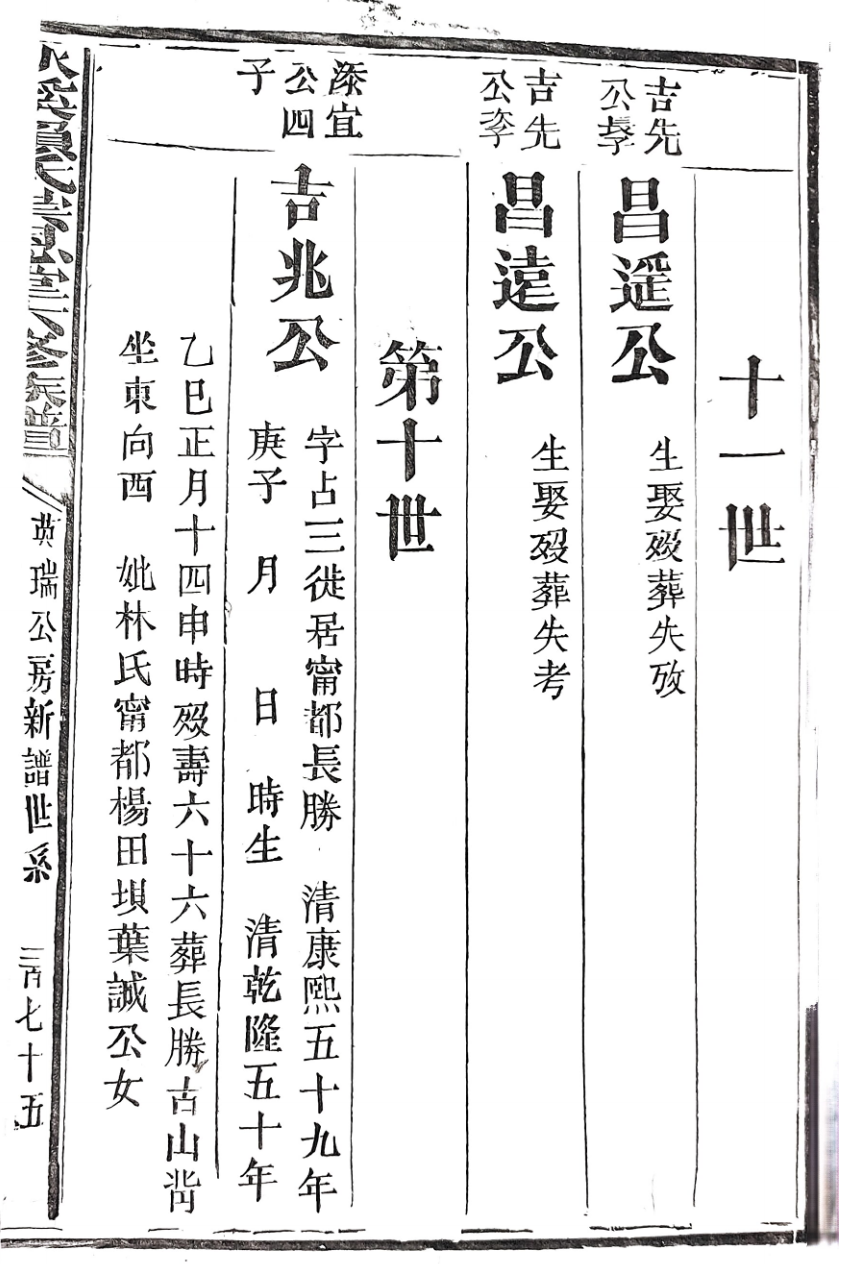 十一世
吉先
公長子
昌遥公
生娶歿葬失攷
吉先
公次子
昌遠公
生娶歿葬失考
第十世
添宜
公四
子
吉兆公
字占三徙居甯都長勝 清康熙五十九年
庚子 月 日 時生 清乾隆五十年
乙巳正月十四申時歿壽六十六葬長勝古山背
坐東向西 妣林氏甯都楊田垻葉誠公女
賴氏 六修族譜
英瑞公房新譜世系
三百七十五